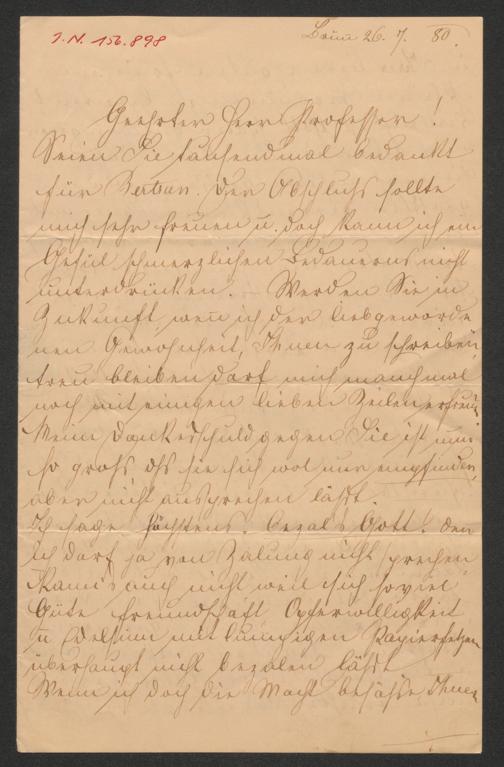 J.N. 156.898
Brünn 26. 7. 80.
Geehrter Herr Professor!
Seien Sie tausendmal bedankt
für Bertran. Der Abschluß sollte
mich sehr freuen u. doch kann ich ein
Gefül schmerzlichen Bedauerns nicht
unterdrücken. – Werden Sie in
Zukunft wenn ich der liebgeworde
nen Gewohnheit, Ihnen zu schreiben,
treu bleiben darf mich manchmal
noch mit einigen lieben Zeilen erfreun
Meine Dankesschuld gegen Sie ist nun
so groß dß sie sich wol nur empfinden,
aber nicht aussprechen läßt.
Ich sage höchstens: bezal's Gott! den
ich darf ja von Zalung nicht sprechen
kann's auch nicht weil sich so viel
Güte Freundschaft Opferwilligkeit
u Edelsinn mit lumpigen Papierfetzen
überhaupt nicht bezalen läßt
Wenn ich doch die Macht besäße Ihnen